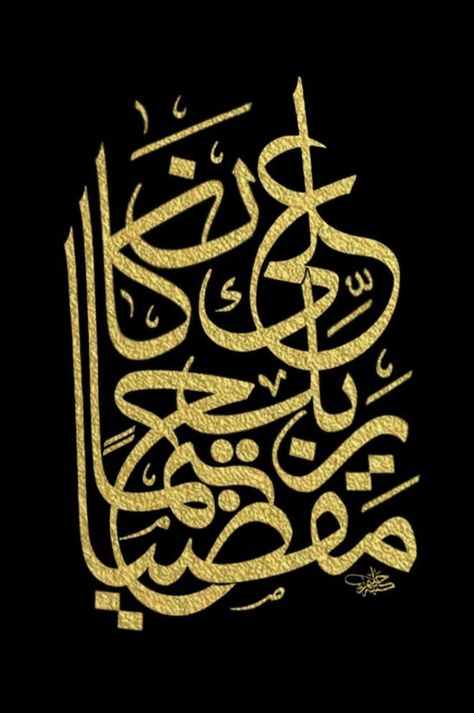 كان على ربك حتما مقضيا